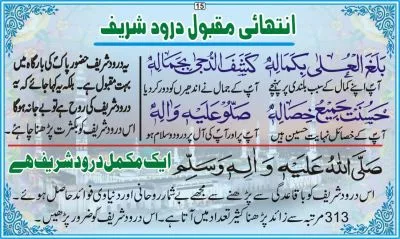 15
انتہائی مقبول درود شریف
بلغ العلی بکمالہٖ کشف الدجی بجمالہٖ
آپ اپنے کمال کے سبب بلندی پر پہنچے آپ کے جمال نے اندھیروں کو دور کر دیا
حسنت جمیع خصالہٖ صلو علیہ والہٖ
آپ کے خصائل نہایت حسین ہیں آپ پر اور آپ کی آل پر درود و سلام ہو
یہ درود شریف حضور پاک کی بارگاہ میں
بہت مقبول ہے۔ بلکہ یہ کہا جائے کہ یہ
درود شریف کی روح ہے تو بے جا نہ ہوگا
اس درود شریف کو بکثرت پڑھنا چاہئے۔
صلی اللہ علیہ والہ وسلم ایک مکمل درود شریف ھے
اس درود شریف کو باقاعدگی سے پڑھنے سے مجھے بے شمار روحانی اور دنیاوی فوائد حاصل ہوئے۔
313 مرتبہ سے زائد پڑھنا کثیر تعداد میں آتا ہے۔ اس درود شریف کو ضرور پڑھیں۔